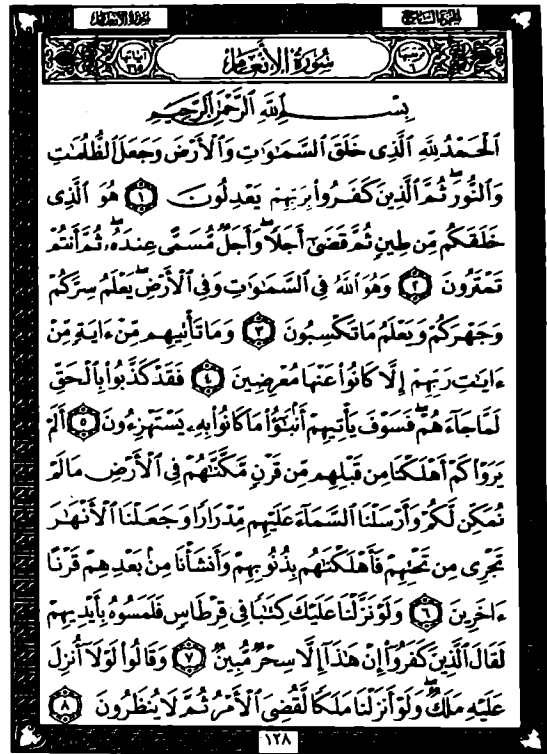 الجزء السابع سورة الأنعام
ترتيبها ٦ سُورَةُ الأَنْعَامِ آياتها ١٦٥
بِسْمِ ٱللَّهِ ٱلرَّحْمَٰنِ ٱلرَّحِيمِ
ٱلْحَمْدُ لِلَّهِ ٱلَّذِى خَلَقَ ٱلسَّمَٰوَٰتِ وَٱلْأَرْضَ وَجَعَلَ ٱلظُّلُمَٰتِ
وَٱلنُّورَ ۖ ثُمَّ ٱلَّذِينَ كَفَرُوا۟ بِرَبِّهِمْ يَعْدِلُونَ ١ هُوَ ٱلَّذِى
خَلَقَكُم مِّن طِينٍ ثُمَّ قَضَىٰٓ أَجَلًا ۖ وَأَجَلٌ مُّسَمًّى عِندَهُۥ ۖ ثُمَّ أَنتُمْ
تَمْتَرُونَ ٢ وَهُوَ ٱللَّهُ فِى ٱلسَّمَٰوَٰتِ وَفِى ٱلْأَرْضِ ۖ يَعْلَمُ سِرَّكُمْ
وَجَهْرَكُمْ وَيَعْلَمُ مَا تَكْسِبُونَ ٣ وَمَا تَأْتِيهِم مِّنْ ءَايَةٍ مِّنْ
ءَايَٰتِ رَبِّهِمْ إِلَّا كَانُوا۟ عَنْهَا مُعْرِضِينَ ٤ فَقَدْ كَذَّبُوا۟ بِٱلْحَقِّ
لَمَّا جَآءَهُمْ ۖ فَسَوْفَ يَأْتِيهِمْ أَنۢبَٰٓؤُا۟ مَا كَانُوا۟ بِهِۦ يَسْتَهْزِءُونَ ٥ أَلَمْ
يَرَوْا۟ كَمْ أَهْلَكْنَا مِن قَبْلِهِم مِّن قَرْنٍ مَّكَّنَّٰهُمْ فِى ٱلْأَرْضِ مَا لَمْ
نُمَكِّن لَّكُمْ وَأَرْسَلْنَا ٱلسَّمَآءَ عَلَيْهِم مِّدْرَارًا وَجَعَلْنَا ٱلْأَنْهَٰرَ
تَجْرِى مِن تَحْتِهِمْ فَأَهْلَكْنَٰهُم بِذُنُوبِهِمْ وَأَنشَأْنَا مِنۢ بَعْدِهِمْ قَرْنًا
ءَاخَرِينَ ٦ وَلَوْ نَزَّلْنَا عَلَيْكَ كِتَٰبًا فِى قِرْطَاسٍ فَلَمَسُوهُ بِأَيْدِيهِمْ
لَقَالَ ٱلَّذِينَ كَفَرُوٓا۟ إِنْ هَٰذَآ إِلَّا سِحْرٌ مُّبِينٌ ٧ وَقَالُوا۟ لَوْلَآ أُنزِلَ
عَلَيْهِ مَلَكٌ ۖ وَلَوْ أَنزَلْنَا مَلَكًا لَّقُضِىَ ٱلْأَمْرُ ثُمَّ لَا يُنظَرُونَ ٨
١٢٨